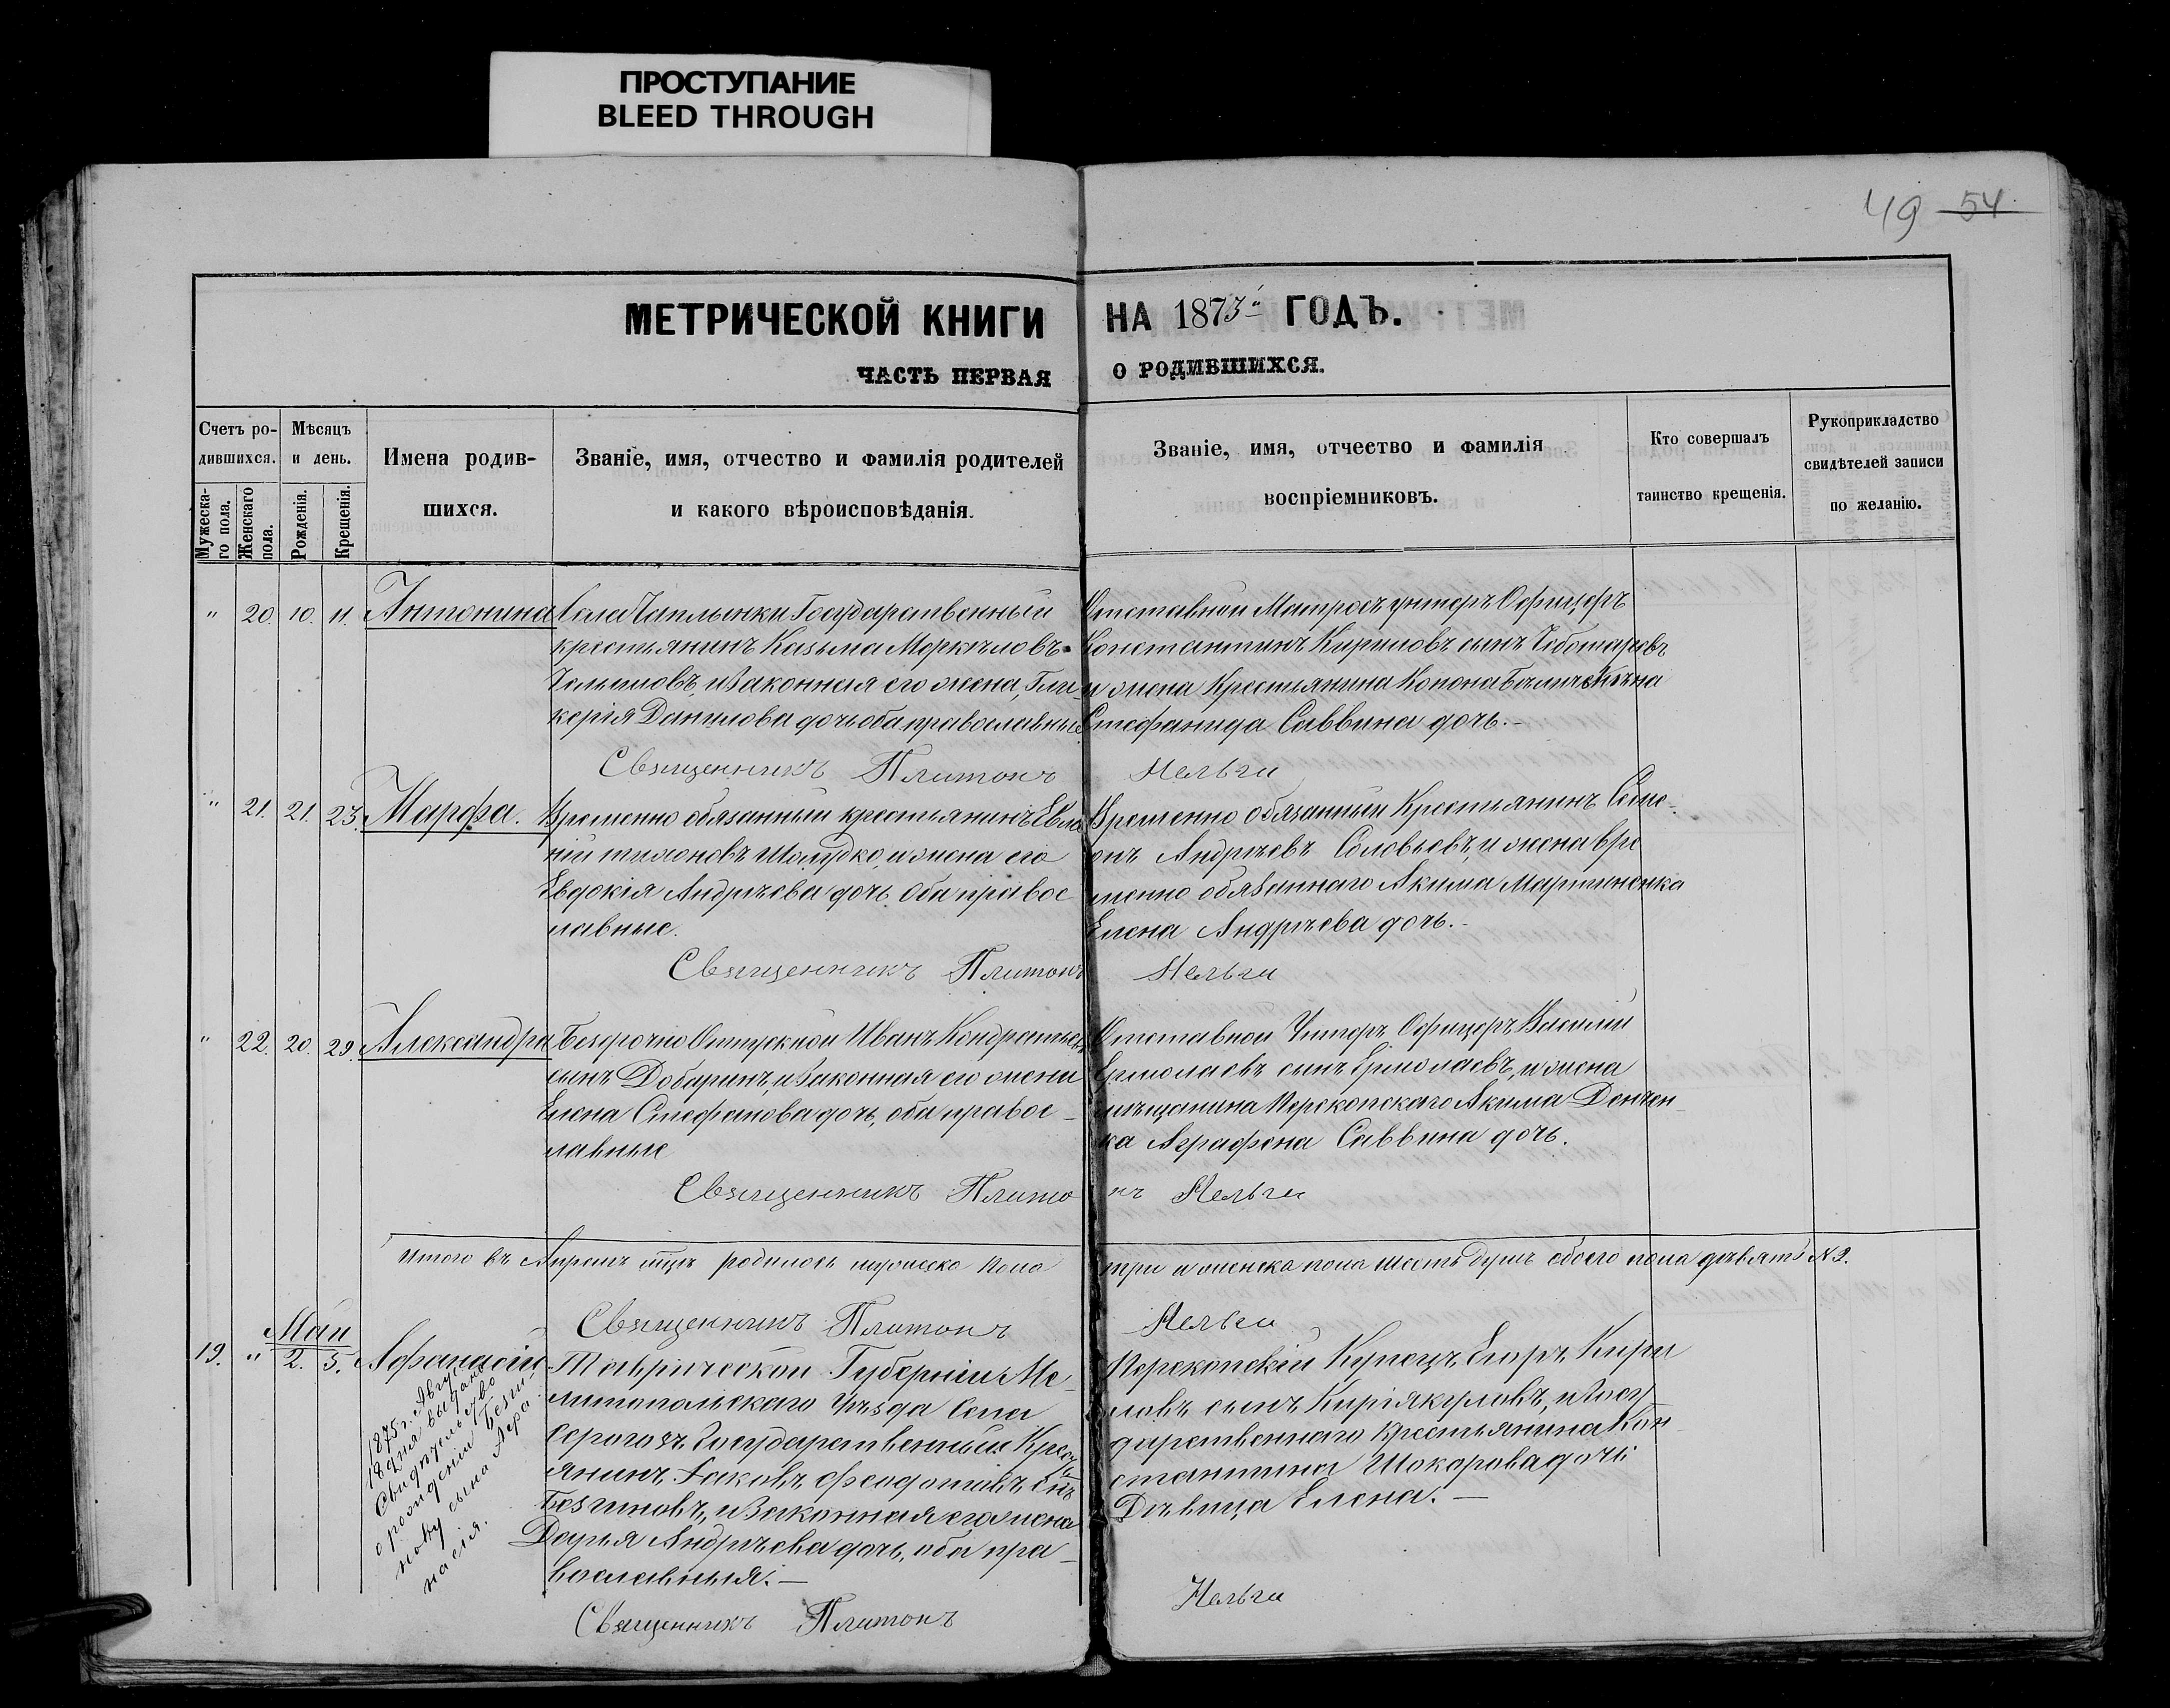 ПРОСТУПАНИЕ
BLEED THROUGH
49 54
МЕТРИЧЕСКОЙ КНИГИ НА 1873й ГОДЪ.
ЧАСТЬ ПЕРВАЯ О РОДИВШИХСЯ.
Счетъ ро-
дившихся.
Мужеска-
го пола.
Женскаго
пола.
Мѣсяцъ
и день.
Рожденія.
Крещенія.
Имена родив-
шихся.
Званіе, имя, отчество и фамилія родителей
и какого вѣроисповѣданія.
Званіе, имя, отчество и фамилія
воспріемниковъ.
Кто совершалъ
таинство крещенія.
Рукоприкладство
свидѣтелей записи
по желанію.
" 20. 10. 11. Антонина
Села Чаплынки Государственный
крестьянинъ Казьма Меркуловъ
и законная его жена, Гли-
керія Данилова дочь оба православные
Отставной Матросъ унтеръ Офицеръ
Константинъ Кириловъ сынъ Чеботаревъ
и жена Крестьянина Конона
Стефанида Саввина дочь.-
Священникъ Платонъ Нельги
" 21. 21. 23. Марфа.
Временно обязанный крестьянинъ
и жена его
Евдокія Андрѣева дочь, оба правос
лавные.
Временно обязанный Крестьянинъ Семе-
онъ Андрѣевъ Соловьевъ, и жена вре
менно обязаннаго Акима Мартыненка
Елена Андрѣева дочь.-
Священникъ Платонъ Нельги
" 22. 20. 29. Александра
Безсрочно Отпускной Иванъ Кондратьевъ
сынъ Добаринъ, и законная его жена
Елена Стефанова дочь, оба правос-
лавные
Отставной Унтеръ Офицеръ Василій
Ермолаевъ сынъ Ермолаевъ, и жена
мѣщанина Перекопскаго Акима Денчен-
ка Аграфена Саввина дочь.
Священникъ Платонъ Нельги
Итого въ Апрелѣ мцѣ родилось мужеска пола три и женска пола шесть душъ обоего пола девять № 9.
Священникъ Платонъ Нельги
Май
19. " 2. 5. Афанасій
1875 г. Авгус
18 дня выдано
Свидѣтельство
о рожденіи Безги-
нову сына Афа
насія.
Таврической Губерніи Ме-
литопольскаго Уѣзда Села
Серогозъ Государственный Крест
янинъ Іаковъ Феодотовъ снъ
Безгиновъ, и Законная его жена
Дарья Андрѣева дочь, оба пра-
вославныя.-
Перекопскій Купецъ Егоръ Кири
ловъ сынъ Киріякуловъ, и Госу
дарственнаго крестьянина Кон
стантина Шокарова дочь
Дѣвица Елена.-
Священникъ Платонъ Нельги